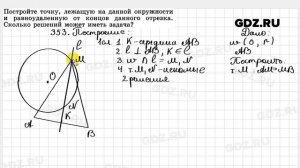 GDZ.RU
Постройте точку, лежащую на данной окружности
и равноудалённую от концов данного отрезка.
Сколько решений может иметь задача?
353. Построение:
Дано:
1. K - середина AB
ω(O, r)
2. l ⊥ AB, K ∈ l
AB
3. ω ∩ l = M, N
Построить:
4. т. M, N - искомые
т. M, AM = MB
2 решения
l
M
O
N
A
K
B